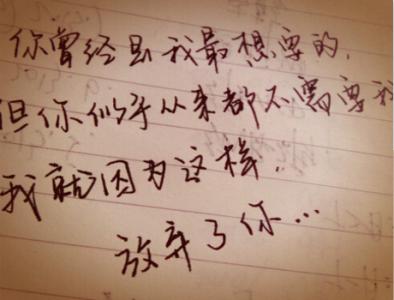 你曾经是我最想要的,
但你似乎从来都不需要我
我就因为这样,
放弃了你...